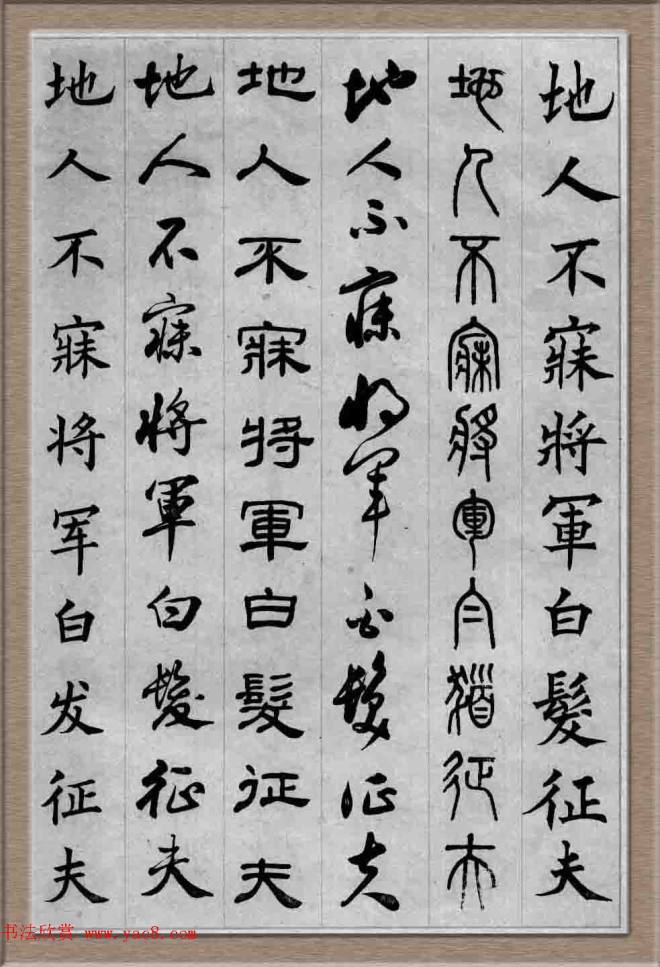 地人不寐將軍白髮征夫
地人不寐將軍白髮征夫
地人不寐將軍白髮征夫
地人不寐將軍白髮征夫
地人不寐將軍白髮征夫
地人不寐将军白发征夫
书法欣赏 www.yac8.com